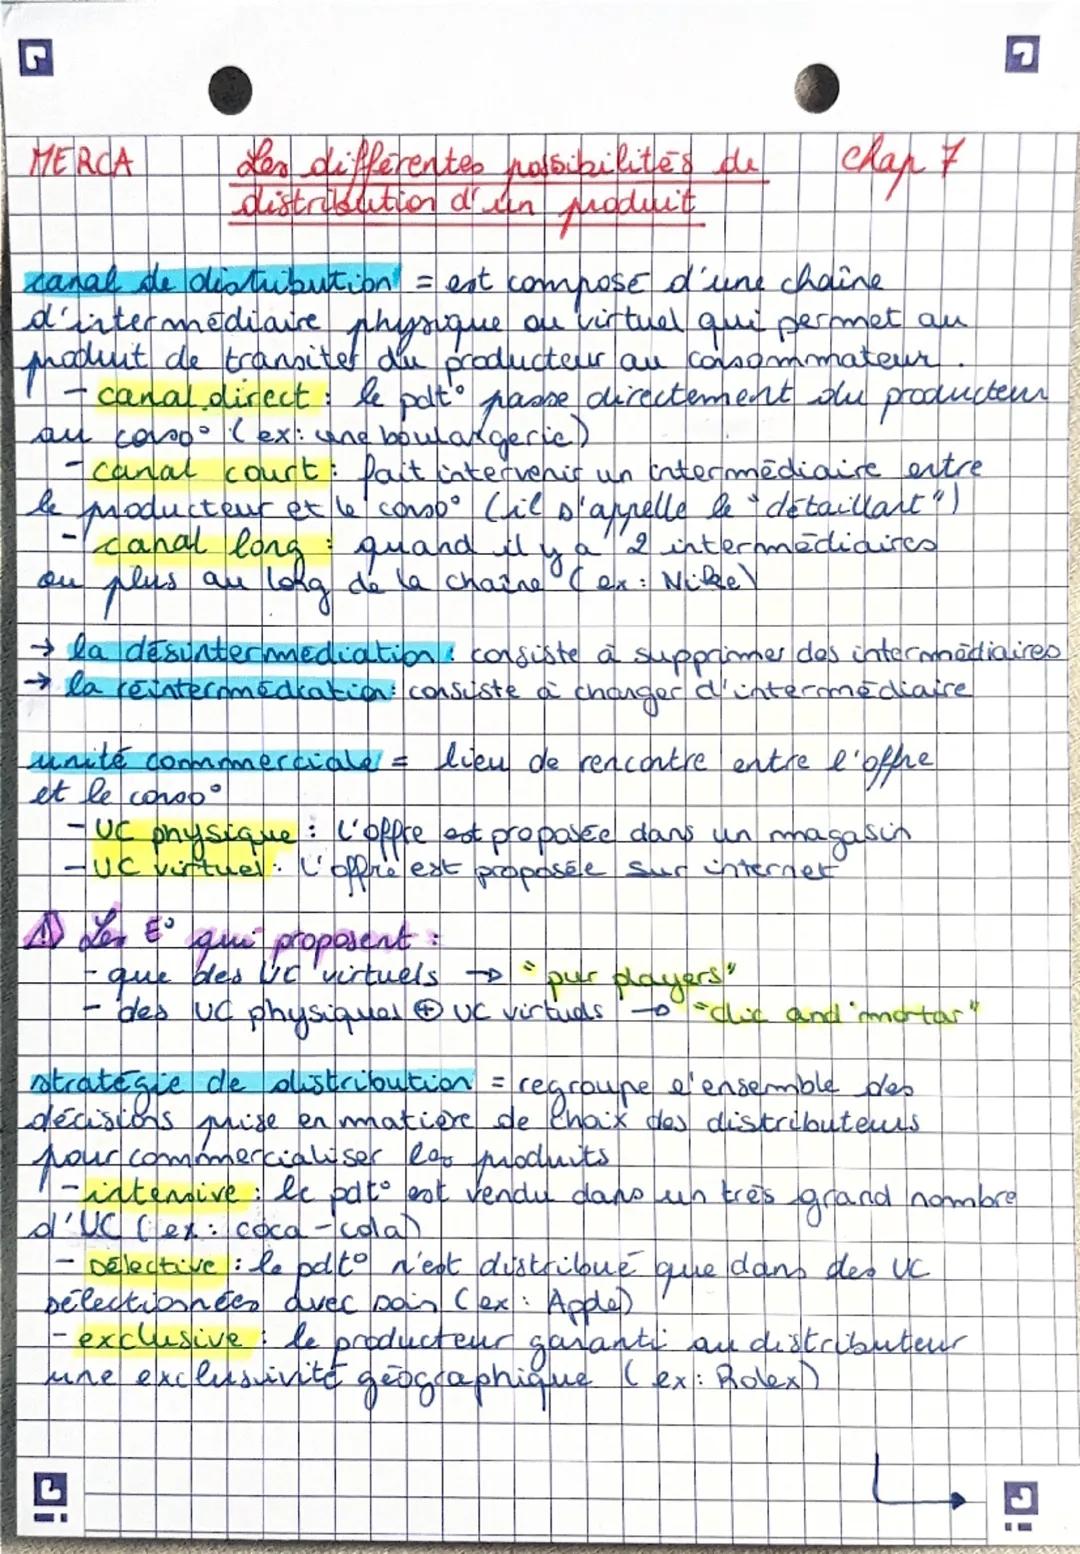 MERCA Les différentes possibilités de chap 7
distribution d'un produit
canal de distribution = est composé d'une chaîne
d'intermédiaire physique ou virtuel qui permet au
produit de transiter du producteur au consommateur.
- canal direct : le pdt° passe directement du producteur
au conso° (ex: une boulangerie)
- canal court : fait intervenir un intermédiaire entre
le producteur et le conso° (il s'appelle le "détaillant")
- canal long : quand il y a 2 intermédiaires
ou plus au long de la chaîne (ex : Nike)
→ la désintermédiation : consiste à supprimer des intermédiaires
→ la réintermédiation : consiste à changer d'intermédiaire
unité commerciale = lieu de rencontre entre l'offre
et le conso°
- UC physique : l'offre est proposée dans un magasin
- UC virtuel : l'offre est proposée sur internet
⚠ Les E° qui proposent :
- que des UC virtuels → "pur players"
- des UC physiques ⊕ UC virtuels → "clic and mortar"
stratégie de distribution = regroupe l'ensemble des
décisions prise en matière de choix des distributeurs
pour commercialiser les produits
- intensive : le pdt° est vendu dans un très grand nombre
d'UC (ex : coca-cola)
- sélective : le pdt° n'est distribué que dans des UC
sélectionnées avec soin (ex : Apple)
- exclusive : le producteur garanti au distributeur
une exclusivité géographique (ex : Rolex)